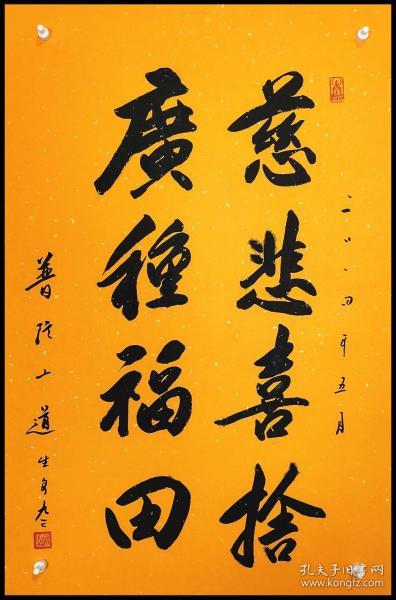 二〇〇四年五月
慈悲喜捨
廣種福田
普陀山道生
九二
孔夫子旧书网
www.kongfz.com